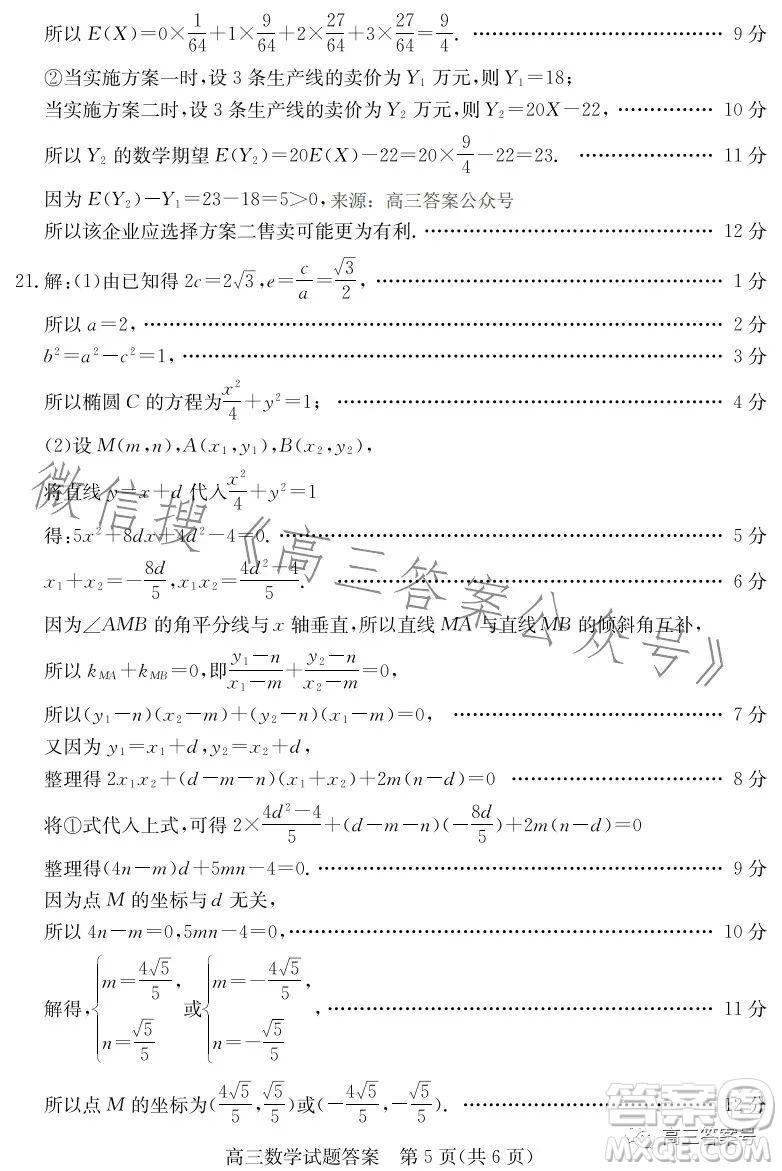 所以 E(X)=0×1/64+1×9/64+2×27/64+3×27/64=9/4. …… 9 分
②当实施方案一时,设 3 条生产线的卖价为 Y₁ 万元,则 Y₁=18;
当实施方案二时,设 3 条生产线的卖价为 Y₂ 万元,则 Y₂=20X−22, …… 10 分
所以 Y₂ 的数学期望 E(Y₂)=20E(X)−22=20×9/4−22=23. …… 11 分
因为 E(Y₂)−Y₁=23−18=5>0, 来源: 高三答案公众号
所以该企业应选择方案二售卖可能更为有利. …… 12 分
21. 解:(1)由已知得 2c=2√3,e=c/a=√3/2, …… 1 分
所以 a=2, …… 2 分
b²=a²−c²=1, …… 3 分
所以椭圆 C 的方程为x²/4+y²=1; …… 4 分
(2)设 M(m,n),A(x₁,y₁),B(x₂,y₂),
将直线 y=x+d 代入x²/4+y²=1
得:5x²+8dx+4d²−4=0. …… 5 分
x₁+x₂=−8d/5,x₁x₂=(4d²−4)/5. …… 6 分
因为∠AMB 的角平分线与 x 轴垂直,所以直线 MA 与直线 MB 的倾斜角互补,
所以 k_MA+k_MB=0,即(y₁−n)/(x₁−m)+(y₂−n)/(x₂−m)=0,
所以(y₁−n)(x₂−m)+(y₂−n)(x₁−m)=0, …… 7 分
又因为 y₁=x₁+d,y₂=x₂+d,
整理得 2x₁x₂+(d−m−n)(x₁+x₂)+2m(n−d)=0 …… 8 分
将①式代入上式,可得 2×(4d²−4)/5+(d−m−n)(−8d/5)+2m(n−d)=0
整理得(4n−m)d+5mn−4=0. …… 9 分
因为点 M 的坐标与 d 无关,
所以 4n−m=0,5mn−4=0, …… 10 分
解得,{m=4√5/5, n=√5/5 或{m=−4√5/5, n=−√5/5, …… 11 分
所以点 M 的坐标为(4√5/5,√5/5)或(−4√5/5,−√5/5). …… 12 分
高三数学试题答案 第 5 页(共 6 页)
微信搜《高三答案公众号》
答案圈
MXQE.COM
高三答案号